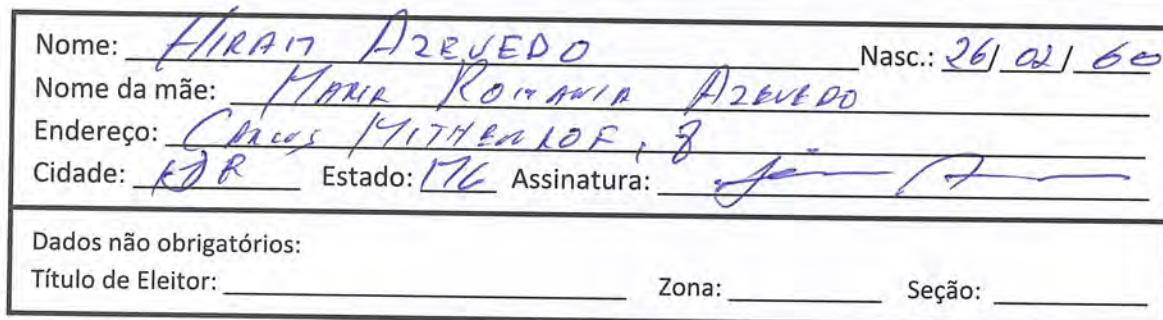 Nome: HIRAM AZEVEDO Nasc.: 26/02/60
Nome da mãe: MARIA ROMANIA AZEVEDO
Endereço: CARLOS , 8
Cidade: Estado: MG Assinatura:
Dados não obrigatórios:
Título de Eleitor: Zona: Seção: